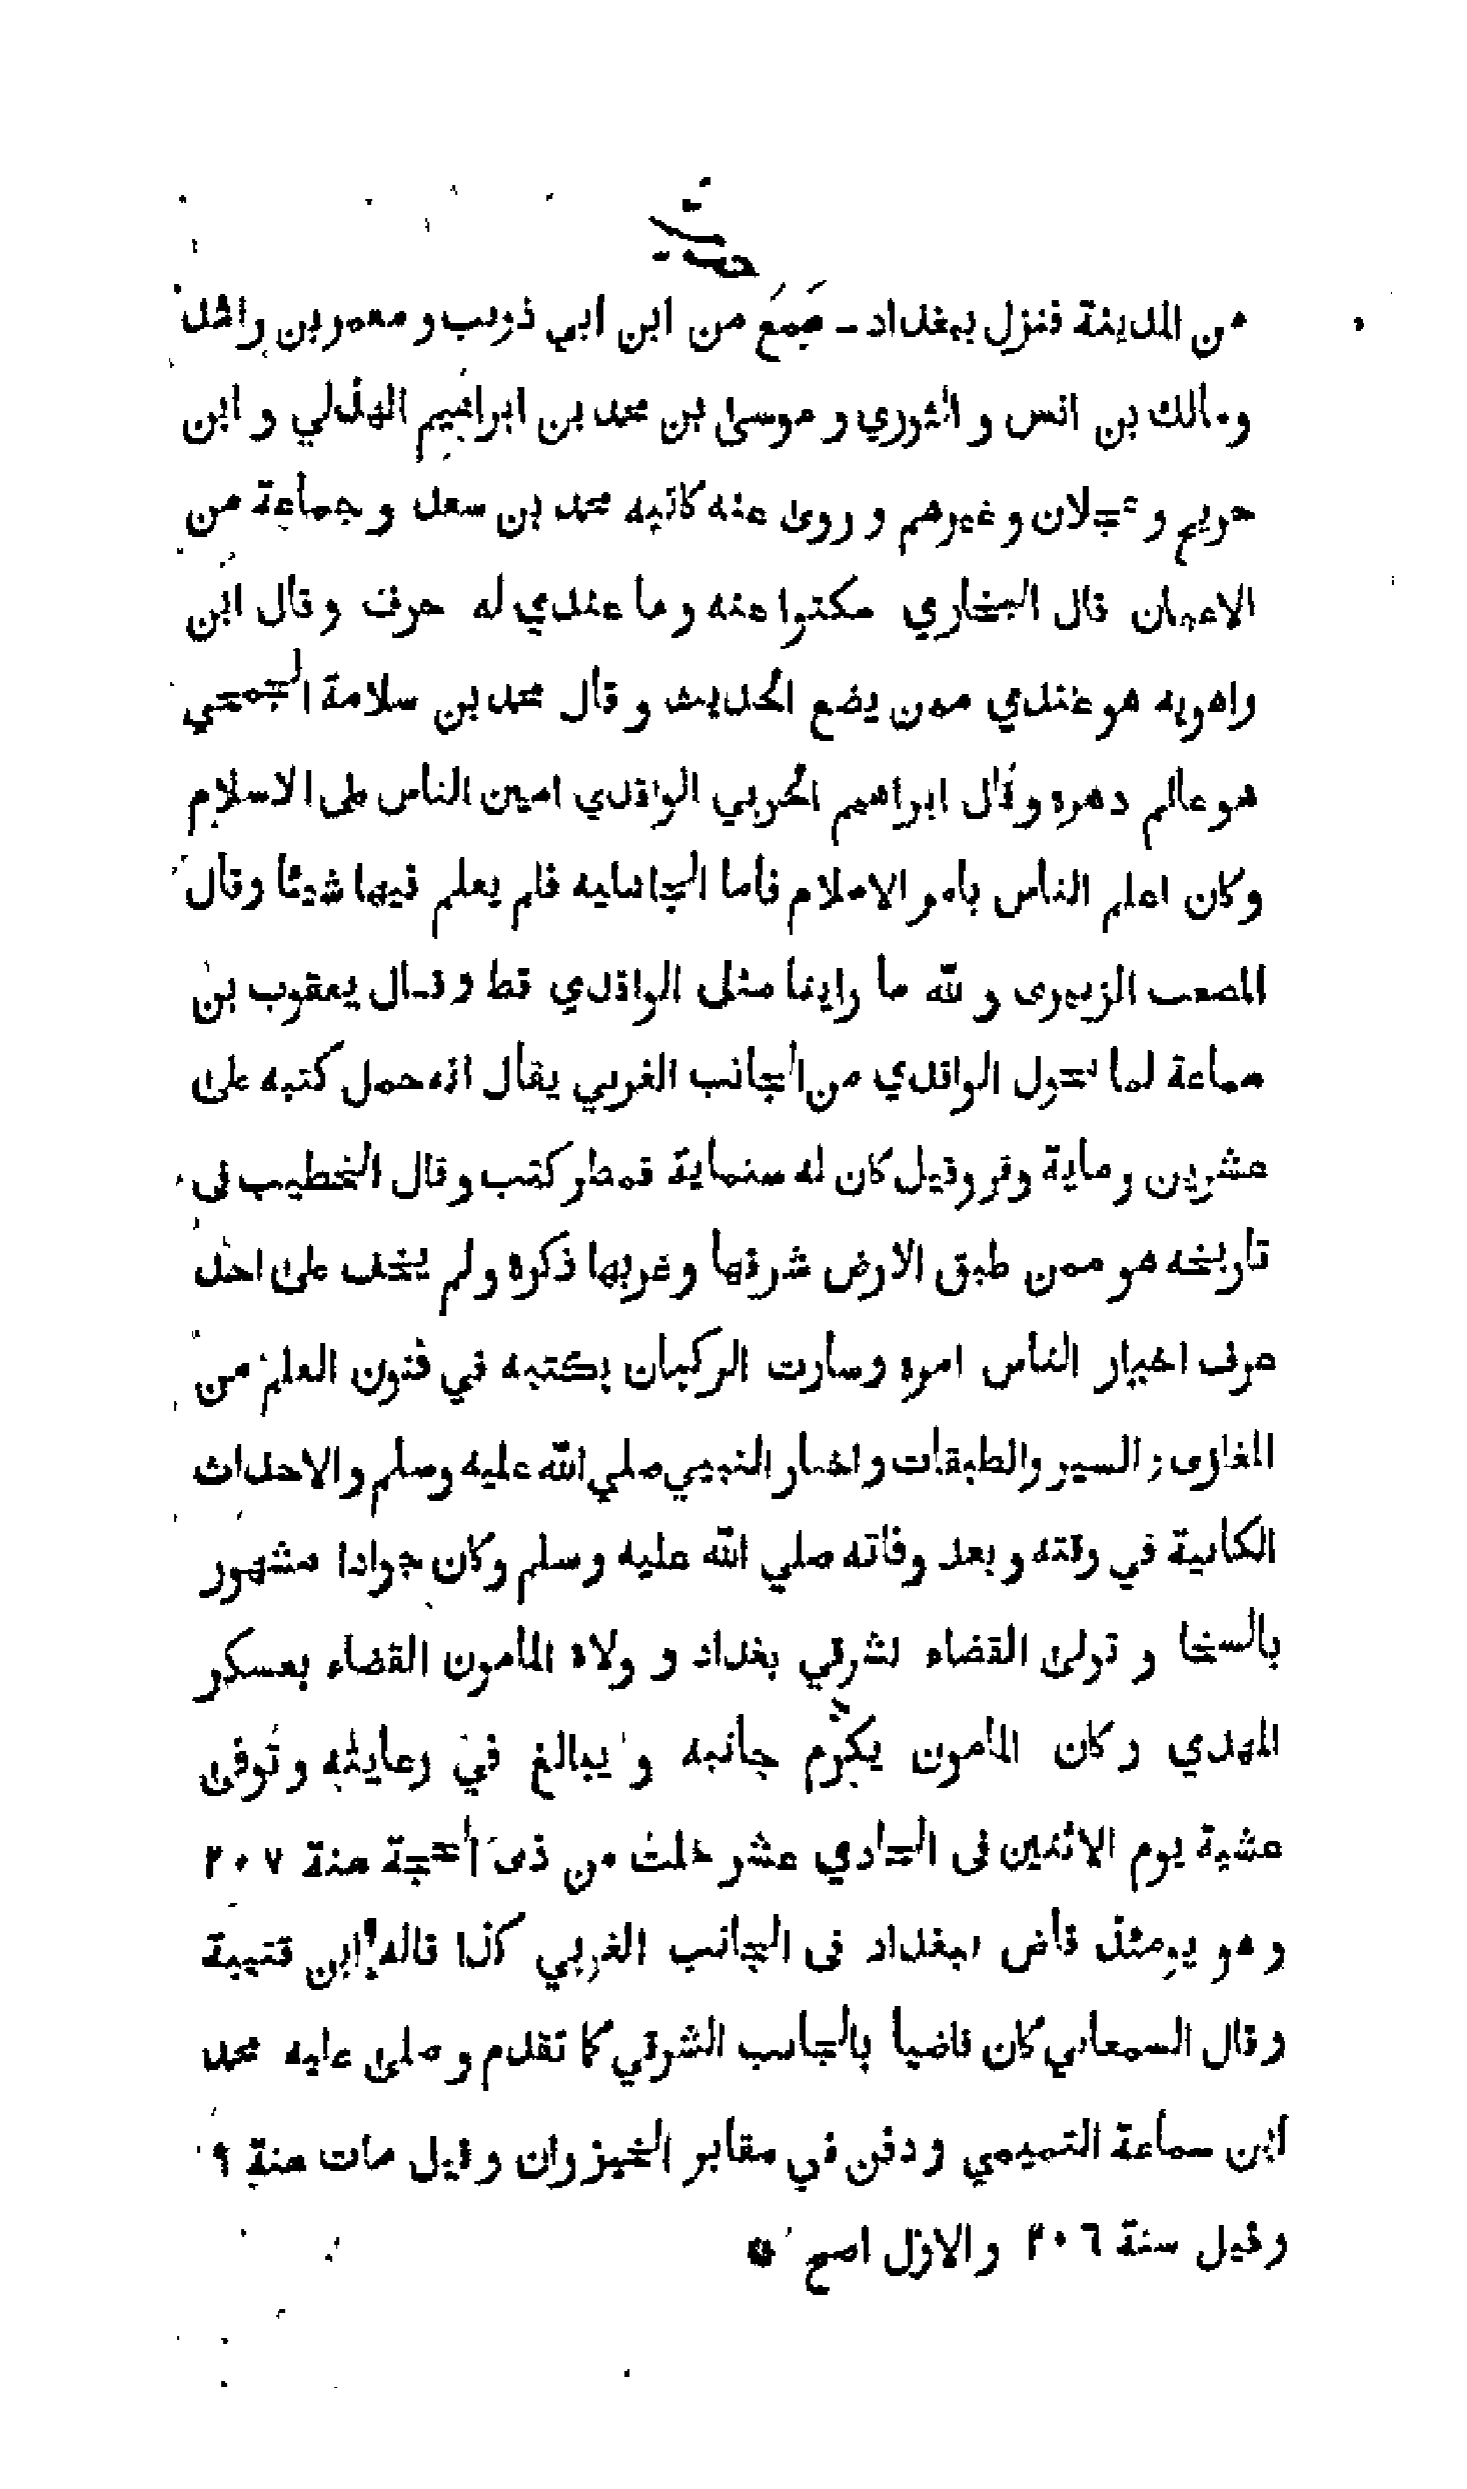 حديث
من المدينة فنزل ببغداد - سمع من ابن ابي ذويب و معمر بن راشد
ومالك بن انس و الثوري و موسى بن محمد بن ابراهيم الهذلي و ابن
جريج و عجلان و غيرهم و روى عنه كاتبه محمد بن سعد و جماعة من
الاعيان قال البخاري سكتوا عنه و ما عندي له حرف وقال ابن
راهويه هو عندي ممن يضع الحديث و قال محمد بن سلامة الجمحي
هو عالم دهره وقال ابراهيم الحربي الواقدي امين الناس على الاسلام
وكان اعلم الناس بامر الاسلام فاما الجاهلية فلم يعلم فيها شيئا وقال
المصعب الزبيرى و الله ما راينا مثل الواقدي قط و قال يعقوب بن
سماعة لما تحول الواقدي من الجانب الغربي يقال انه حمل كتبه على
عشرين و ماية وقر وقيل كان له ستماية قمطر كتب و قال الخطيب فى
تاريخه هو ممن طبق الارض شرقها و غربها ذكره و لم يخف على احد
عرف اخبار الناس امره وسارت الركبان بكتبه في فنون العلم من
المغازى و السير والطبقات و اخبار النبي صلي الله عليه وسلم والاحداث
الكاينة في وقته و بعد وفاته صلي الله عليه و سلم وكان جوادا مشهور
بالسخا و تولى القضاء لشرقي بغداد و ولاه المامون القضاء بعسكر
المهدي و كان المامون يكرم جانبه و يبالغ في رعايته و توفى
عشية يوم الاثنين فى الحادي عشر خلت من ذى الحجة سنة ٢٠٧
و هو يومئذ قاض ببغداد فى الجانب الغربي كذا قاله ابن قتيبة
و قال السمعاني كان قاضيا بالجانب الشرقي كما تقدم و صلى عليه محمد
ابن سماعة التميمي و دفن في مقابر الخيزران و قيل مات سنة ٩
و قيل سنة ٢٠٦ و الاول اصح *